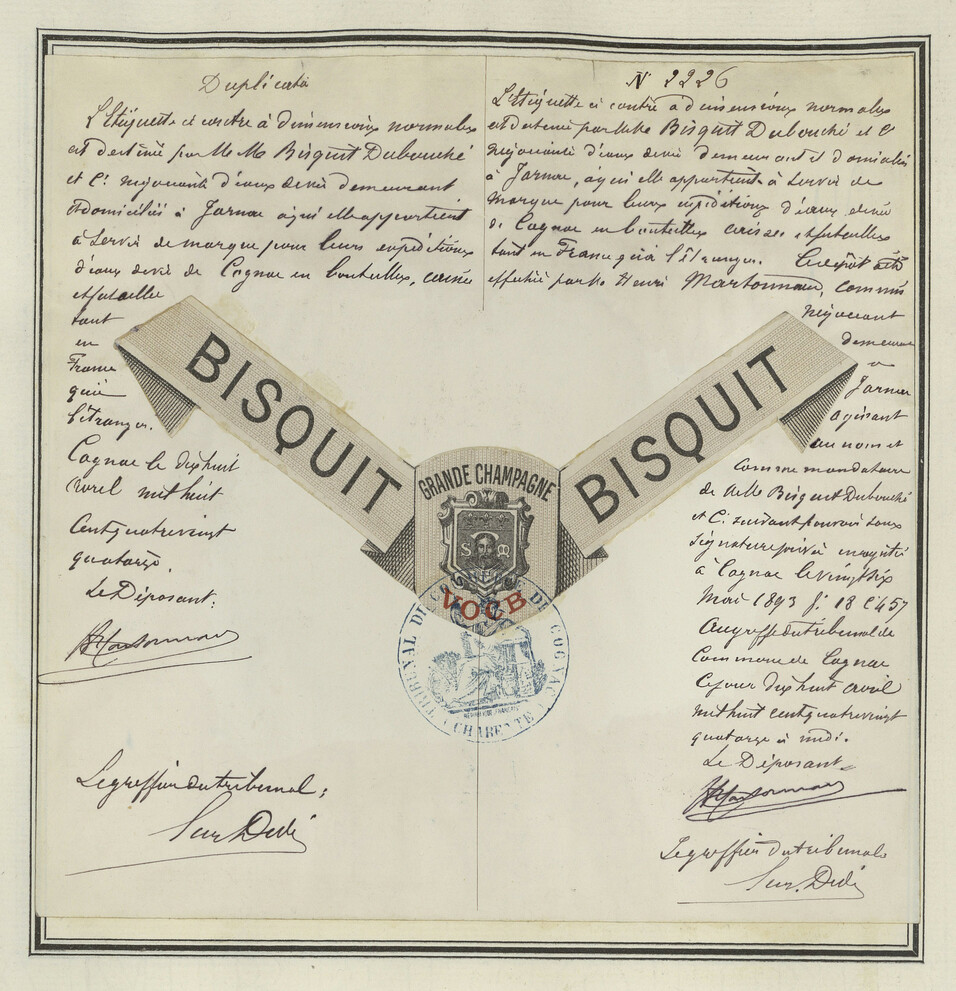 Duplicata
L'Etiquette ci contre à dimensions normales
est destiné par MM. Bisquit Dubouché
et Cⁱᵉ négociants d'eaux de vie demeurant
et domiciliés à Jarnac à qui elle appartient
à servir de marque pour leurs expéditions
d'eaux de vie de Cognac en bouteilles, caisses
et futailles
tant
en
France
qu'à
l'étranger.
Cognac le dix huit
avril mil huit
cent quatre vingt
quatorze.
Le Déposant:
Le greffier du tribunal;
N° 2226
L'Etiquette ci contre à dimensions normales
est destiné par MM. Bisquit Dubouché et Cⁱᵉ
négociants d'eaux de vie demeurant et domiciliés
à Jarnac, à qui elle appartient à servir de
marque pour leurs expéditions d'eaux de vie
de Cognac en bouteilles caisses et futailles
tant en France qu'à l'étranger. Ce dépôt a été
effectué par M. Henri commis
négociant
demeurant
à
Jarnac
agissant
au nom et
comme mandataire
de MM. Bisquit Dubouché
et Cⁱᵉ suivant pouvoir sous
signature privée enregistré
à Cognac le vingt six
Mai 1893 fº 18 Cº 457
Au greffe du tribunal de
Commerce de Cognac
Ce jour dix huit avril
mil huit cent quatre vingt
quatorze à midi.
Le Déposant
Le greffier du tribunal
BISQUIT
BISQUIT
GRANDE CHAMPAGNE
S M
VOCB
TRIBUNAL DE COMMERCE DE COGNAC
RÉPUBLIQUE FRANÇAISE
CHARENTE